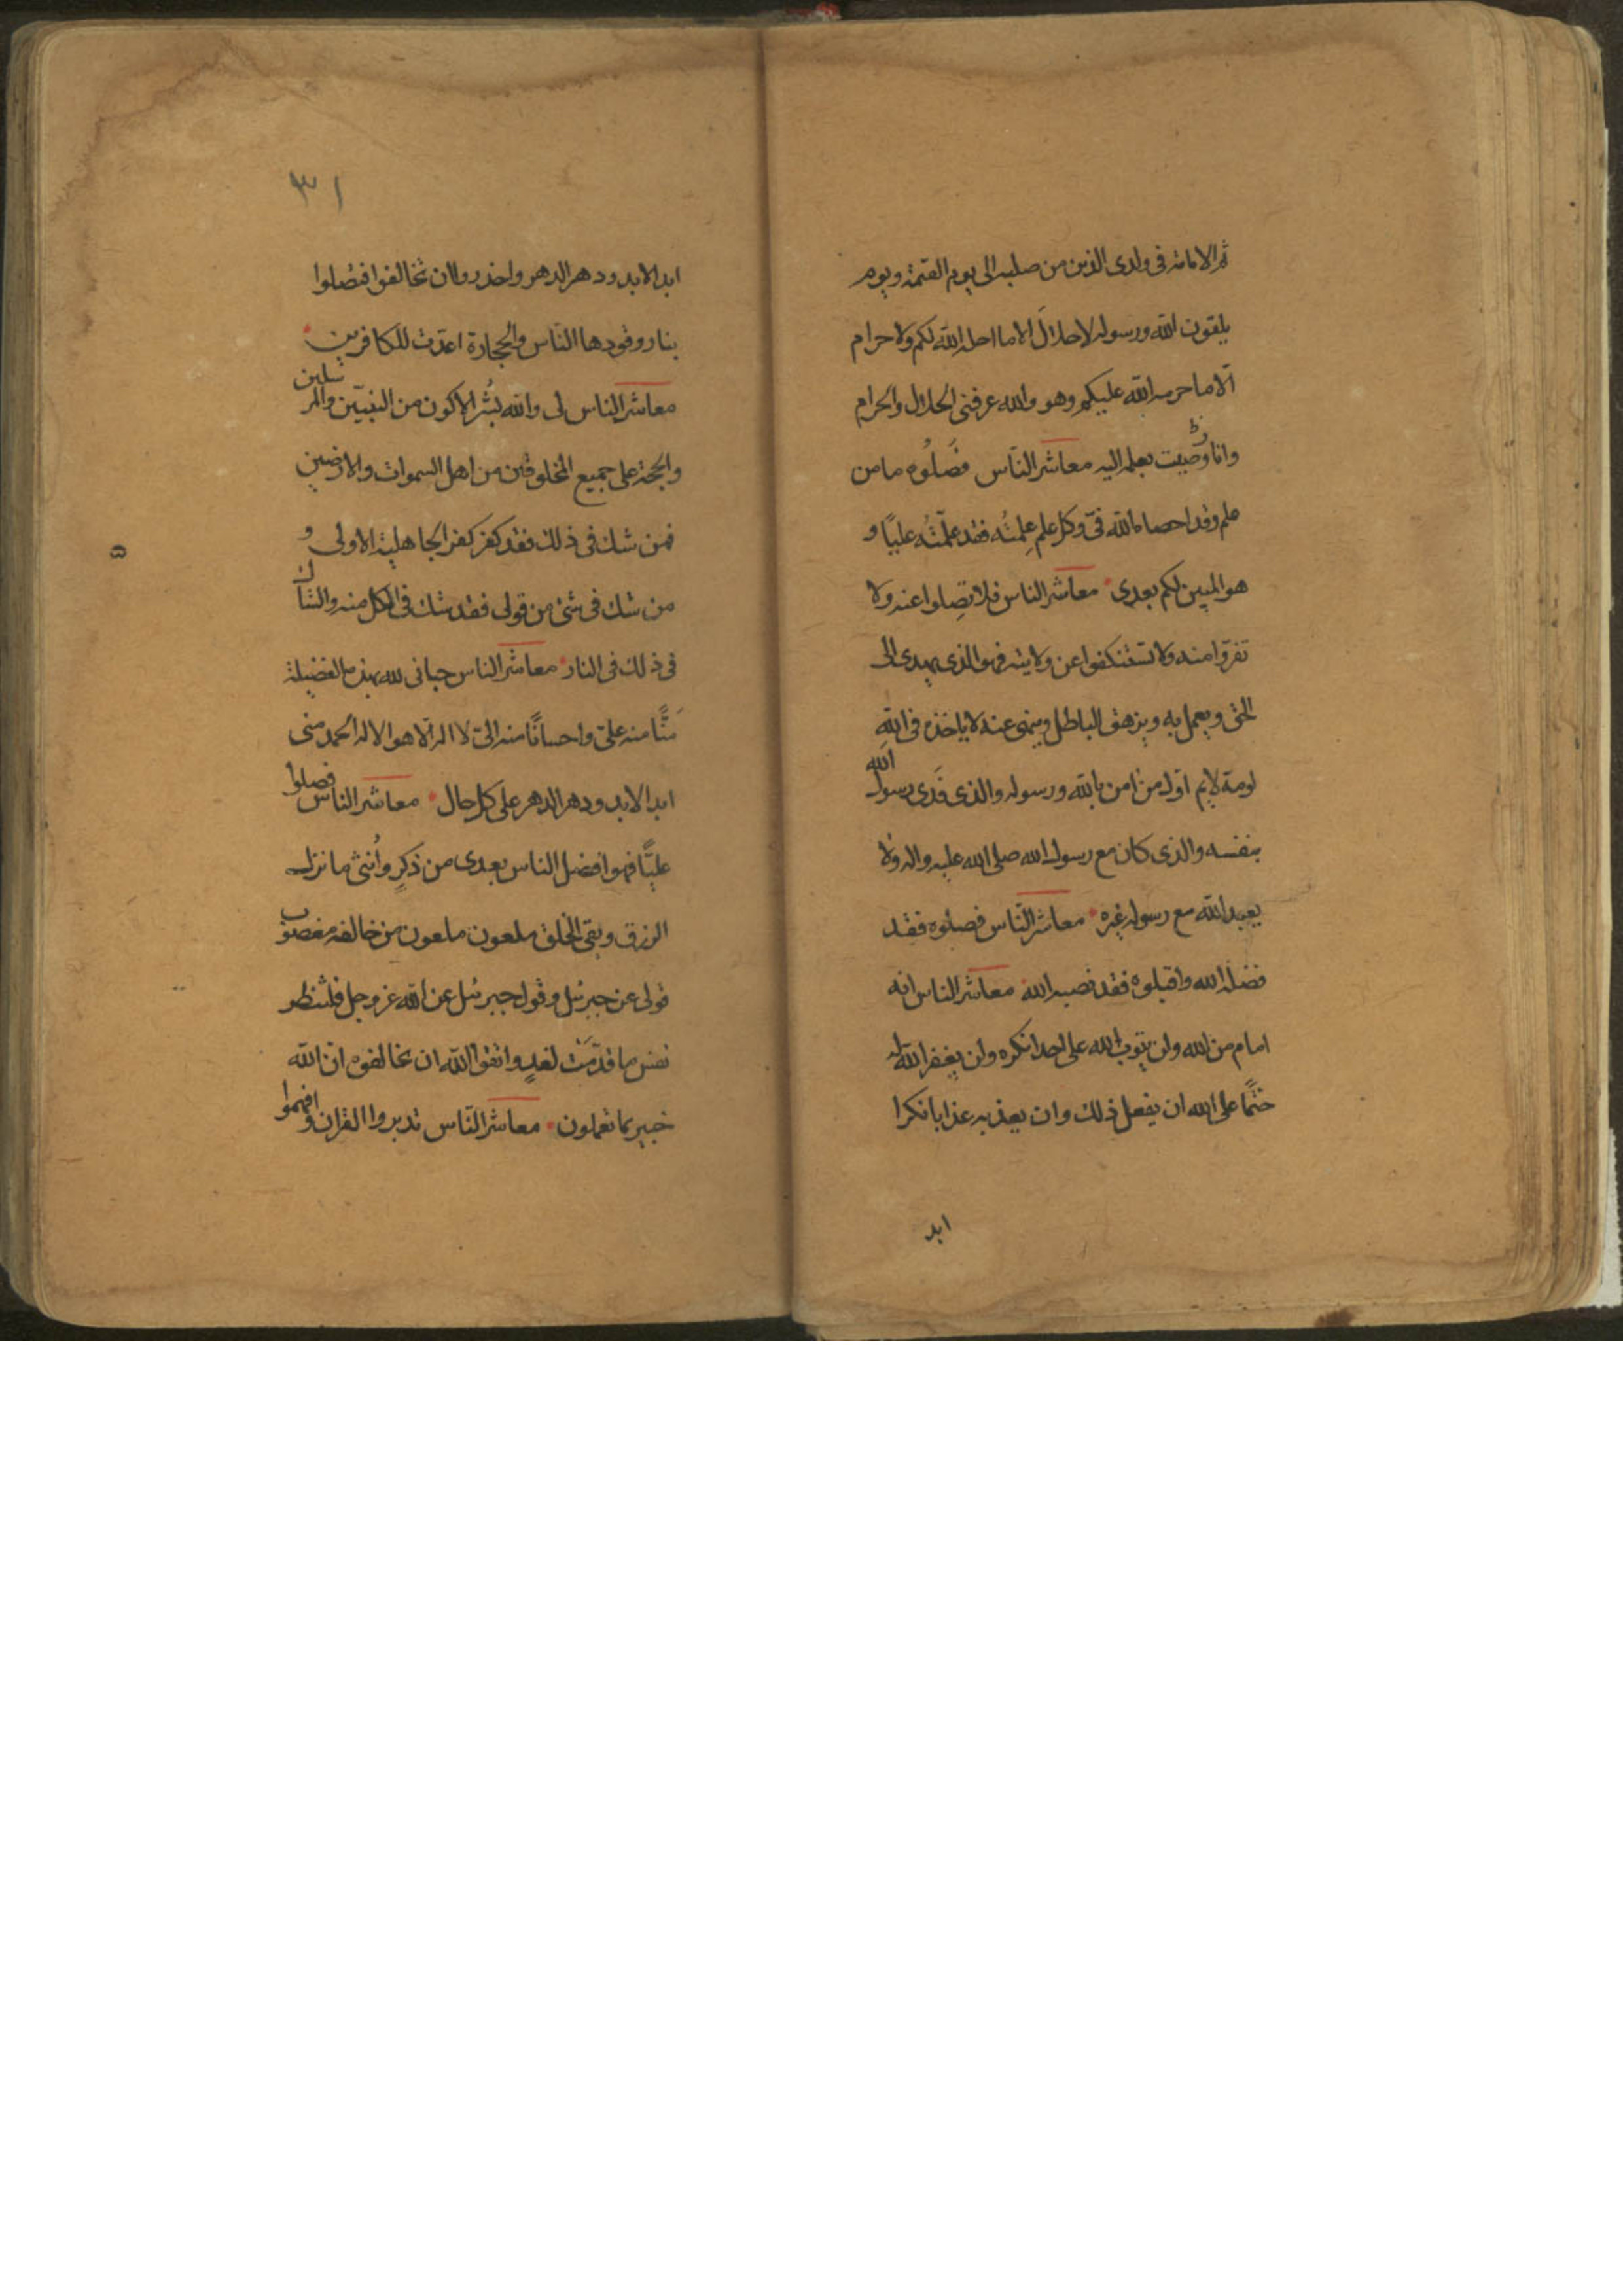 ثم الامامة فى ولدى الذين من صلبه الى يوم القيمة ويوم
يلقون الله ورسوله لاحلالَ الا ما احله الله لكم ولا حرام
الّا ما حرمه الله عليكم وهو والله عرفنى الحلال والحرام
وانا وصيت بعلمه اليه معاشر النّاس فضّلُوه ما من
علم وقد احصاه الله فىّ وكل علم عِلمتُه فقد علّمتُه عليًا و
هو المبين لكم بعدى معاشر الناس فلا تضلوا عنه ولا
تفرّوا منه ولا تستنكفوا عن ولايته فهو الذى يهدى الى
الحق ويعمل به ويزهق الباطل وينهى عنه لا ياخذه فى اللهِ
لومة لايم اوّل من امن بالله ورسوله والذى فَدى رسول الله
بنفسه والذى كان مع رسول الله صلى الله عليه واله ولا
يعبد الله مع رسوله غيره معاشر النّاس فضلوه فقد
فضله الله واقبلوه فقد نصبه الله معاشر الناس انه
امام من الله ولن يتوب الله على احد انكره ولن يغفر الله له
حتمًا على الله ان يفعل ذلك وان يعذبه عذابا نكرا
ابد
٣١
ابد الابد ودهر الدهر واحذروا ان تخالفوا فتصلوا
بنار وقودها النّاس والحجارة اعدّت للكافرين
معاشر الناس لى والله بُشر الاكون من النبيّين والمرسلين
والحجة على جميع المخلوقين من اهل السموات والارضين
فمن شك فى ذلك فقد كفر كفر الجاهلية الاولى و
من شك فى شئ من قولى فقد شك فى الكل منه والشاك
فى ذلك فى النار معاشر الناس حبانى الله بهذه الفضيلة
مَنًّا منه علىّ واحسانًا منه الىّ لا اله الّا هو الا له الحمد منى
ابد الابد ودهر الدهر على كل حال معاشر الناس فضلوا
عليًّا فهو افضل الناس بعدى من ذكرٍ واُنثى ما نزل
الرزق وبقى الخلق ملعون ملعون من خالفه مغضوب
قولى عن جبرئيل وقول جبرئيل عن الله عز وجل فلتنظر
نفس ما قدّمَت لغدٍ واتقوا الله ان تخالفوه انّ الله
خبير بما تعملون معاشر النّاس تدبروا القران وافهموا